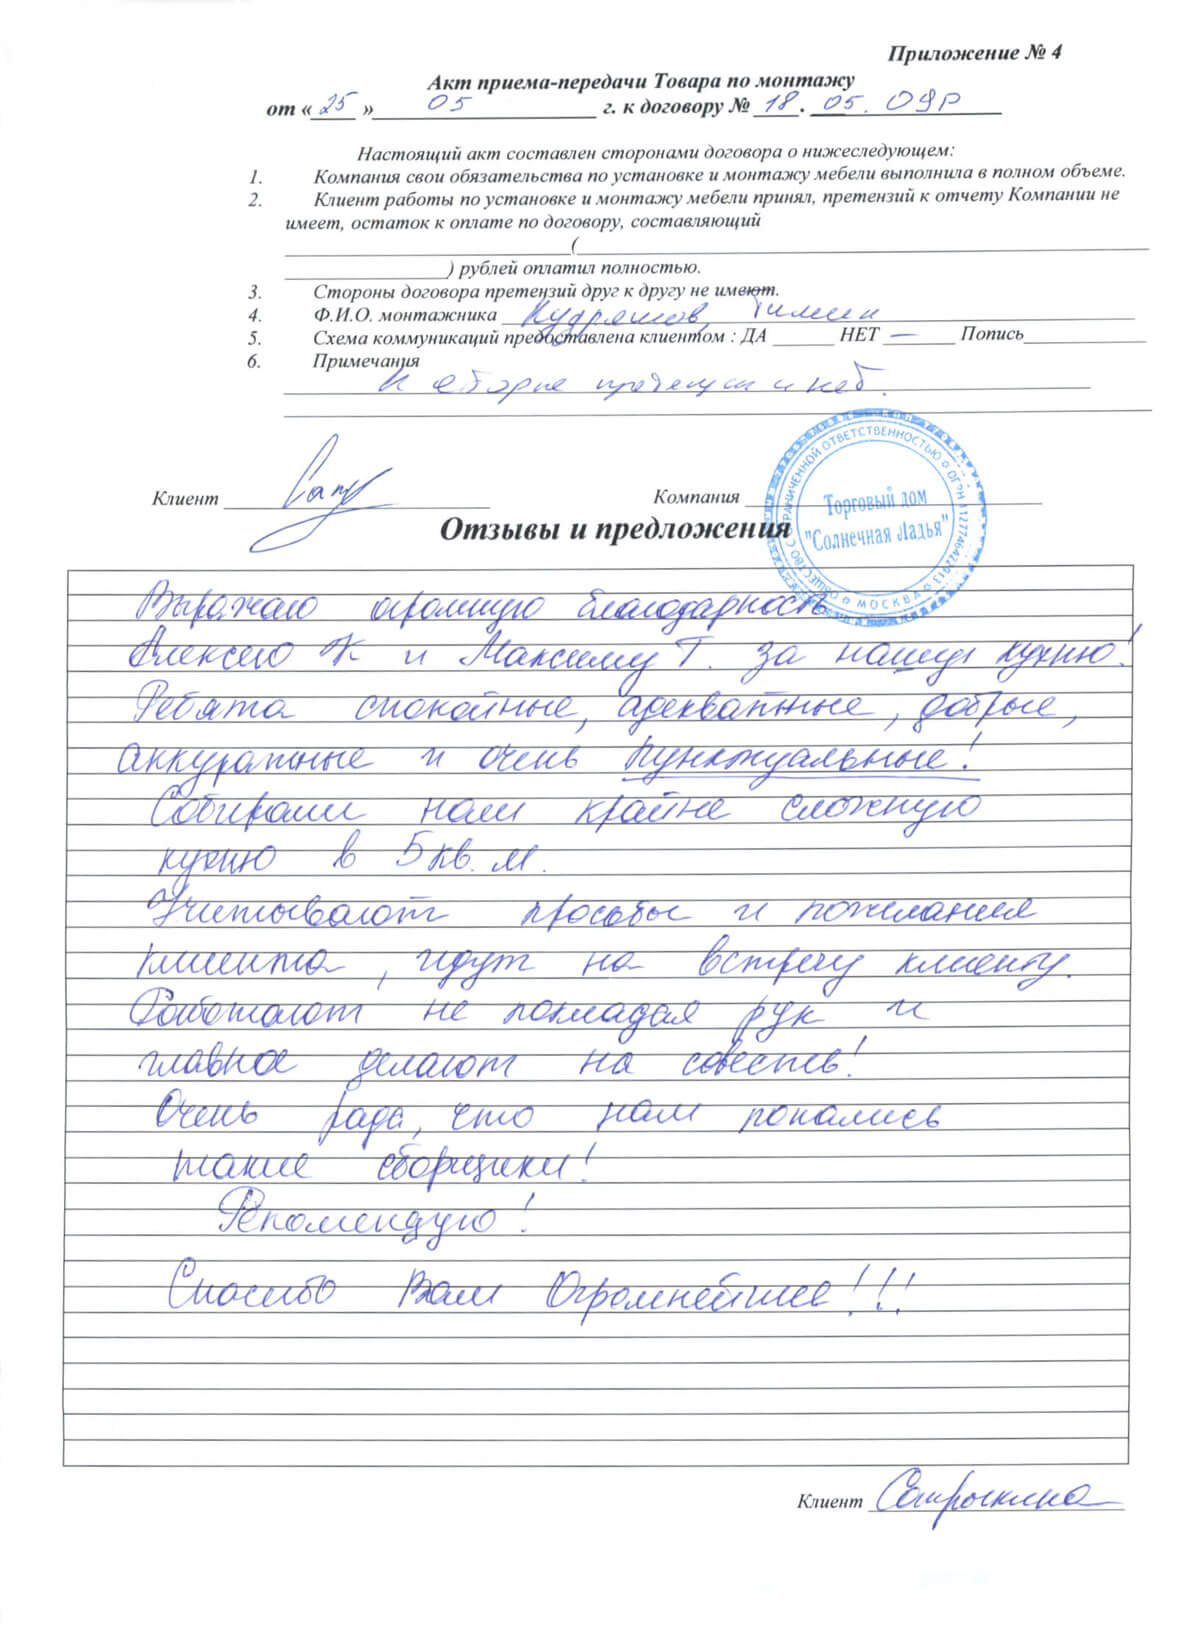 Приложение № 4
Акт приема-передачи Товара по монтажу
от « 25 » 05 г. к договору № 18 . 05. 09Р
Настоящий акт составлен сторонами договора о нижеследующем:
1. Компания свои обязательства по установке и монтажу мебели выполнила в полном объеме.
2. Клиент работы по установке и монтажу мебели принял, претензий к отчету Компании не
имеет, остаток к оплате по договору, составляющий
(
) рублей оплатил полностью.
3. Стороны договора претензий друг к другу не имеют.
4. Ф.И.О. монтажника Кудряшов,
5. Схема коммуникаций предоставлена клиентом : ДА НЕТ — Попись
6. Примечания
к сборке претензий нет.
Клиент
Компания
ОБЩЕСТВО С ОГРАНИЧЕННОЙ ОТВЕТСТВЕННОСТЬЮ
МОСКВА
Торговый дом
"Солнечная Ладья"
Отзывы и предложения
Выражаю огромную благодарность
Алексею К и Максиму Т. за нашу кухню!
Ребята спокойные, адекватные, добрые,
аккуратные и очень пунктуальные!
Собирали нам крайне сложную
кухню в 5 кв. м.
Учитывают просьбы и пожелания
клиента, идут на встречу клиенту.
Работают не покладая рук и
главное делают на совесть!
Очень рада, что нам попались
такие сборщики!
Рекомендую!
Спасибо Вам Огромнейшее!!!
Клиент